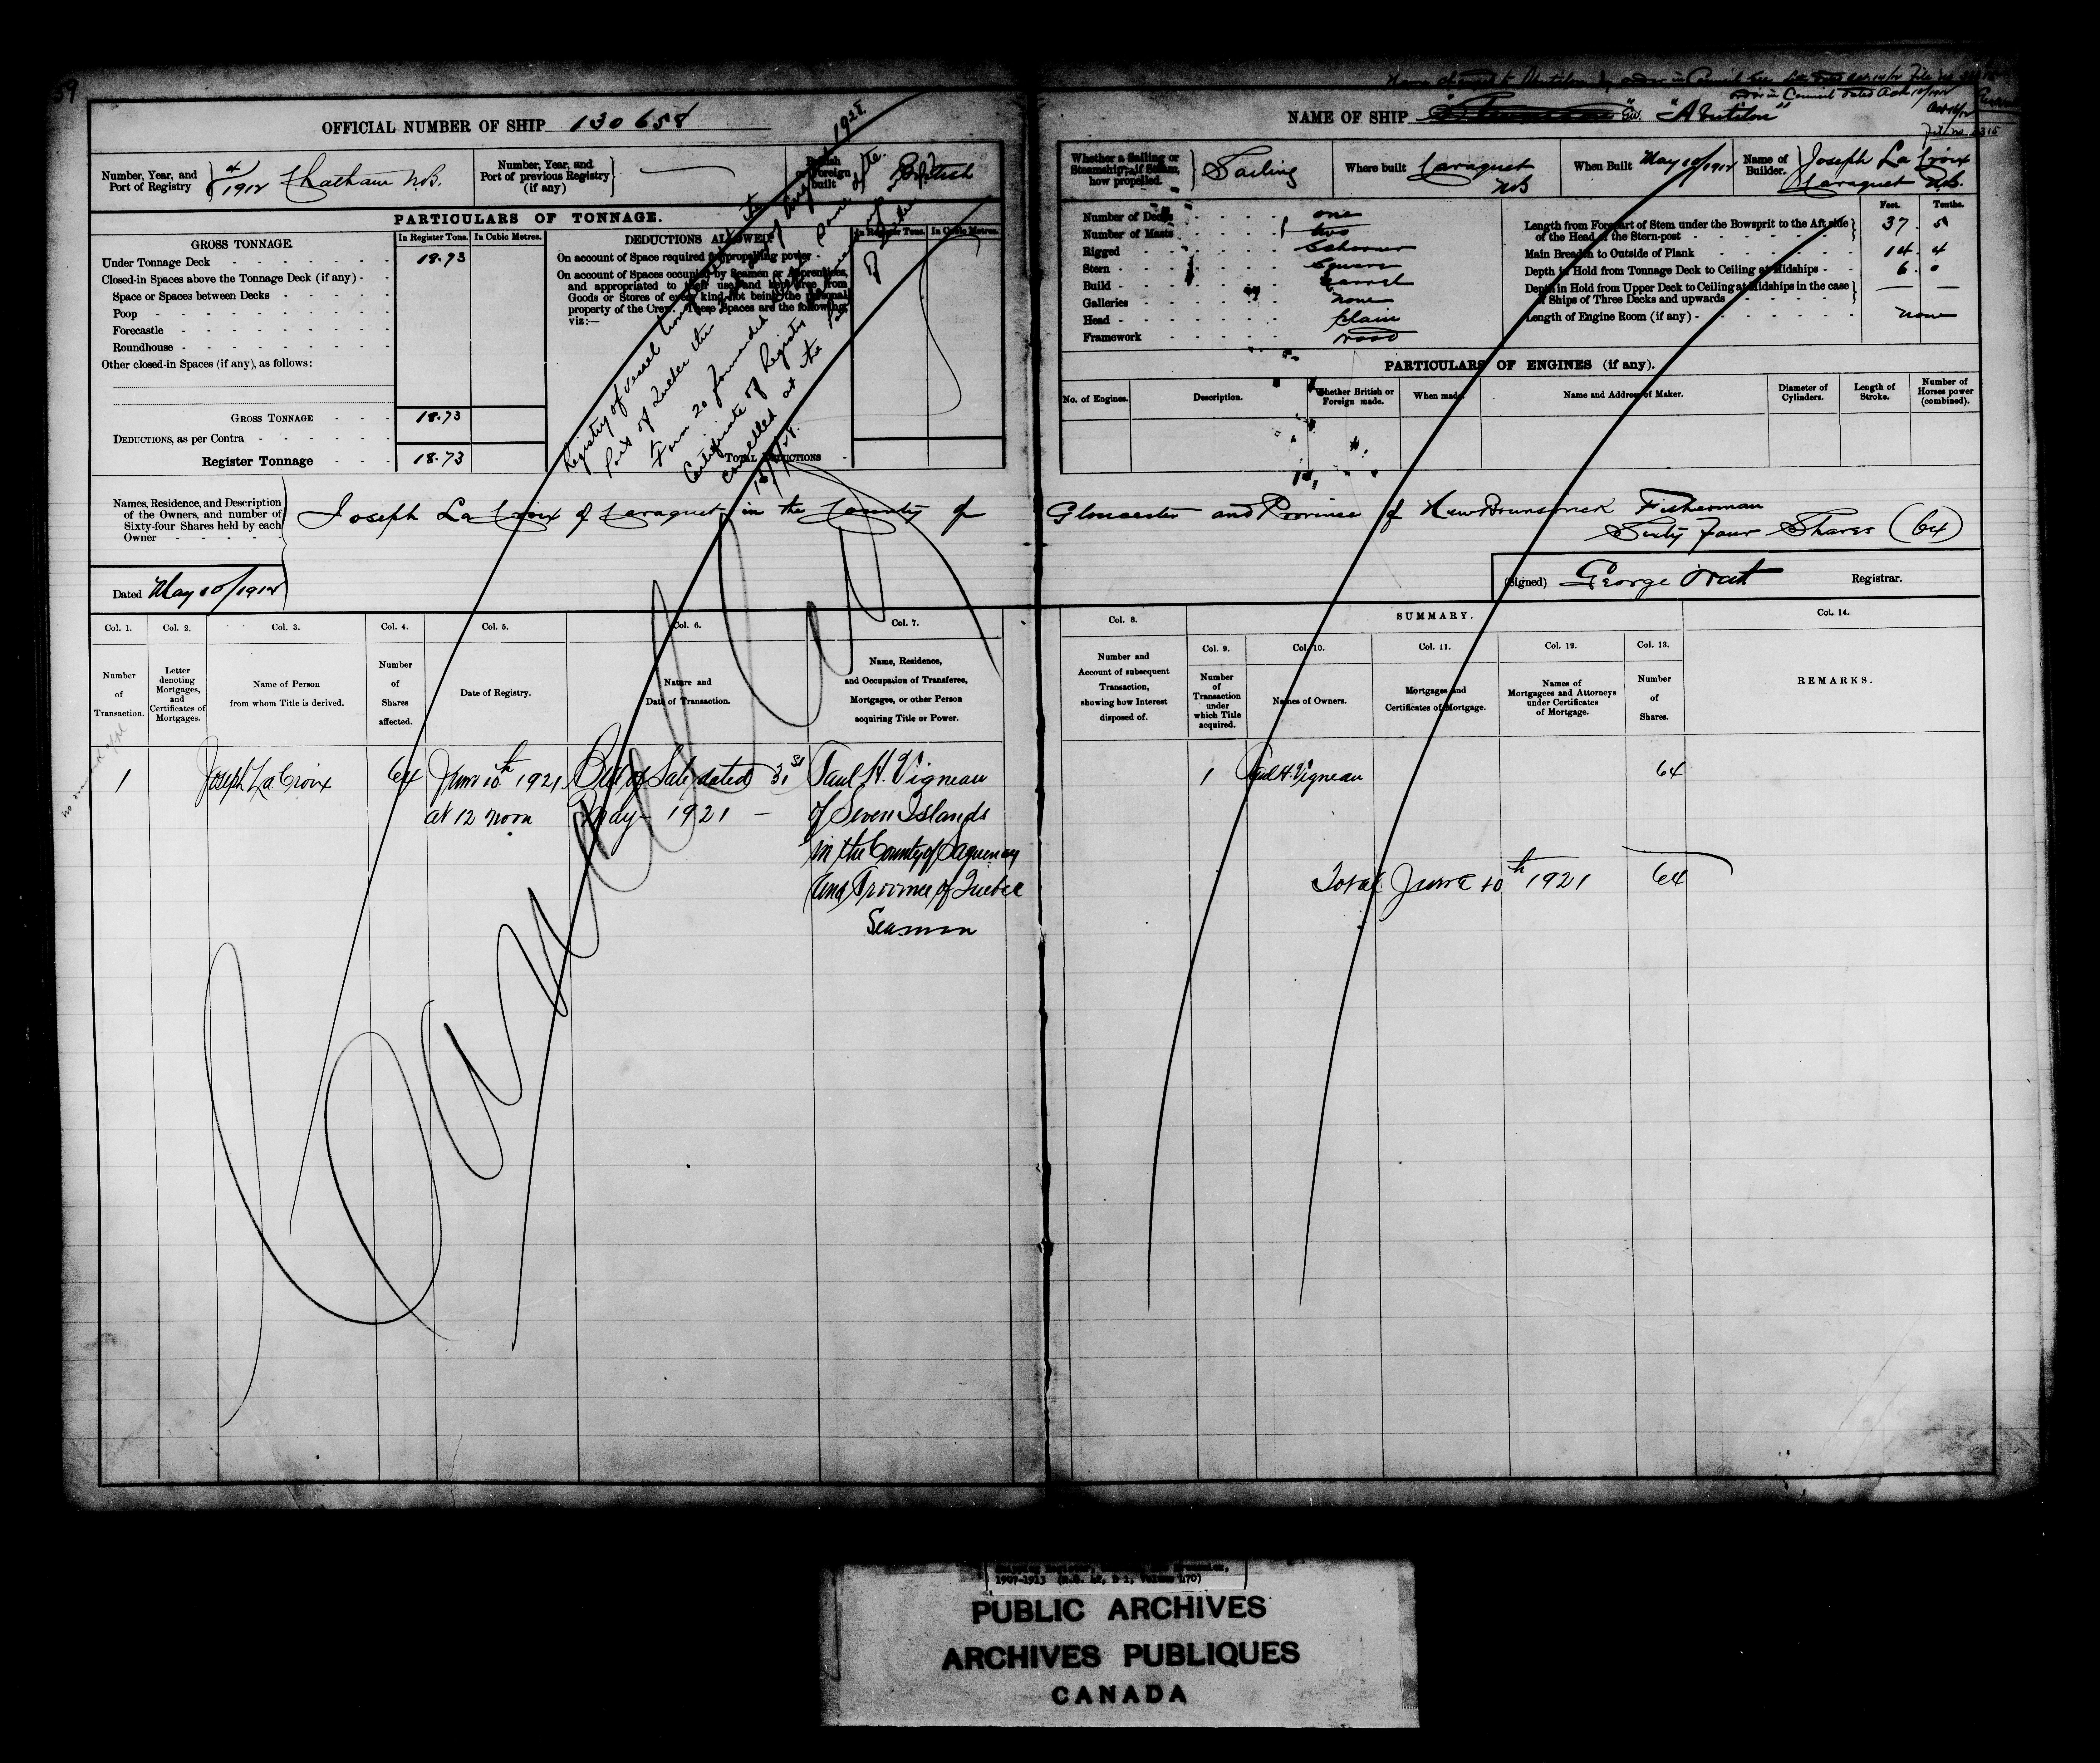 59
OFFICIAL NUMBER OF SHIP 130658
Number, Year, and Port of Registry 4/1912 Chatham N.B.
Number, Year, and Port of previous Registry (if any) —
British or Foreign built British
PARTICULARS OF TONNAGE.
GROSS TONNAGE.
In Register Tons. In Cubic Metres.
Under Tonnage Deck 18.73
Closed-in Spaces above the Tonnage Deck (if any)
Space or Spaces between Decks
Poop
Forecastle
Roundhouse
Other closed-in Spaces (if any), as follows:
GROSS TONNAGE 18.73
DEDUCTIONS, as per Contra
Register Tonnage 18.73
DEDUCTIONS ALLOWED.
In Register Tons. In Cubic Metres.
On account of Space required for propelling power
On account of Spaces occupied by Seamen or Apprentices,
and appropriated to their use, and kept free from
Goods or Stores of every kind, not being the personal
property of the Crew. These Spaces are the following,
viz:—
TOTAL DEDUCTIONS
Registry of vessel
Port of Quebec this
Form 20 forwarded
Certificate of Registry
cancelled at the
1925.
Names, Residence, and Description
of the Owners, and number of
Sixty-four Shares held by each
Owner
Joseph La Croix of Caraquet in the County of
Dated May 10/1912
Col. 1. Col. 2. Col. 3. Col. 4. Col. 5. Col. 6. Col. 7.
Number of Transaction.
Letter denoting Mortgages, and Certificates of Mortgages.
Name of Person from whom Title is derived.
Number of Shares affected.
Date of Registry.
Nature and Date of Transaction.
Name, Residence, and Occupation of Transferee, Mortgagee, or other Person acquiring Title or Power.
1 Joseph La Croix 64 June 10th 1921 Bill of Sale dated 31st Paul H. Vigneau
at 12 noon May 1921 — of Seven Islands
in the County of Saguenay
and Province of Quebec
Seaman
Cancelled
NAME OF SHIP "Abutilon"
Order in Council dated Oct
Whether a Sailing or Steamship; if Steam, how propelled. Sailing
Where built Caraquet NB
When Built May 10/1912
Name of Builder. Joseph La Croix Caraquet N.B.
Number of Decks one
Number of Masts two
Rigged Schooner
Stern Square
Build Carvel
Galleries none
Head plain
Framework wood
Feet. Tenths.
Length from Forepart of Stem under the Bowsprit to the Aft side of the Head of the Stern-post 37 . 5
Main Breadth to Outside of Plank 14 . 4
Depth in Hold from Tonnage Deck to Ceiling at Midships 6 . 0
Depth in Hold from Upper Deck to Ceiling at Midships in the case of Ships of Three Decks and upwards — —
Length of Engine Room (if any) none
PARTICULARS OF ENGINES (if any).
No. of Engines.
Description.
Whether British or Foreign made.
When made.
Name and Address of Maker.
Diameter of Cylinders.
Length of Stroke.
Number of Horses power (combined).
Gloucester and Province of New Brunswick Fisherman
Sixty Four Shares (64)
(Signed) George Watt Registrar.
Col. 8. SUMMARY. Col. 14.
Col. 9. Col. 10. Col. 11. Col. 12. Col. 13.
Number and Account of subsequent Transaction, showing how Interest disposed of.
Number of Transaction under which Title acquired.
Names of Owners.
Mortgages and Certificates of Mortgage.
Names of Mortgagees and Attorneys under Certificates of Mortgage.
Number of Shares.
REMARKS.
1 Paul H. Vigneau 64
Total June 10th 1921 64
PUBLIC ARCHIVES
ARCHIVES PUBLIQUES
CANADA